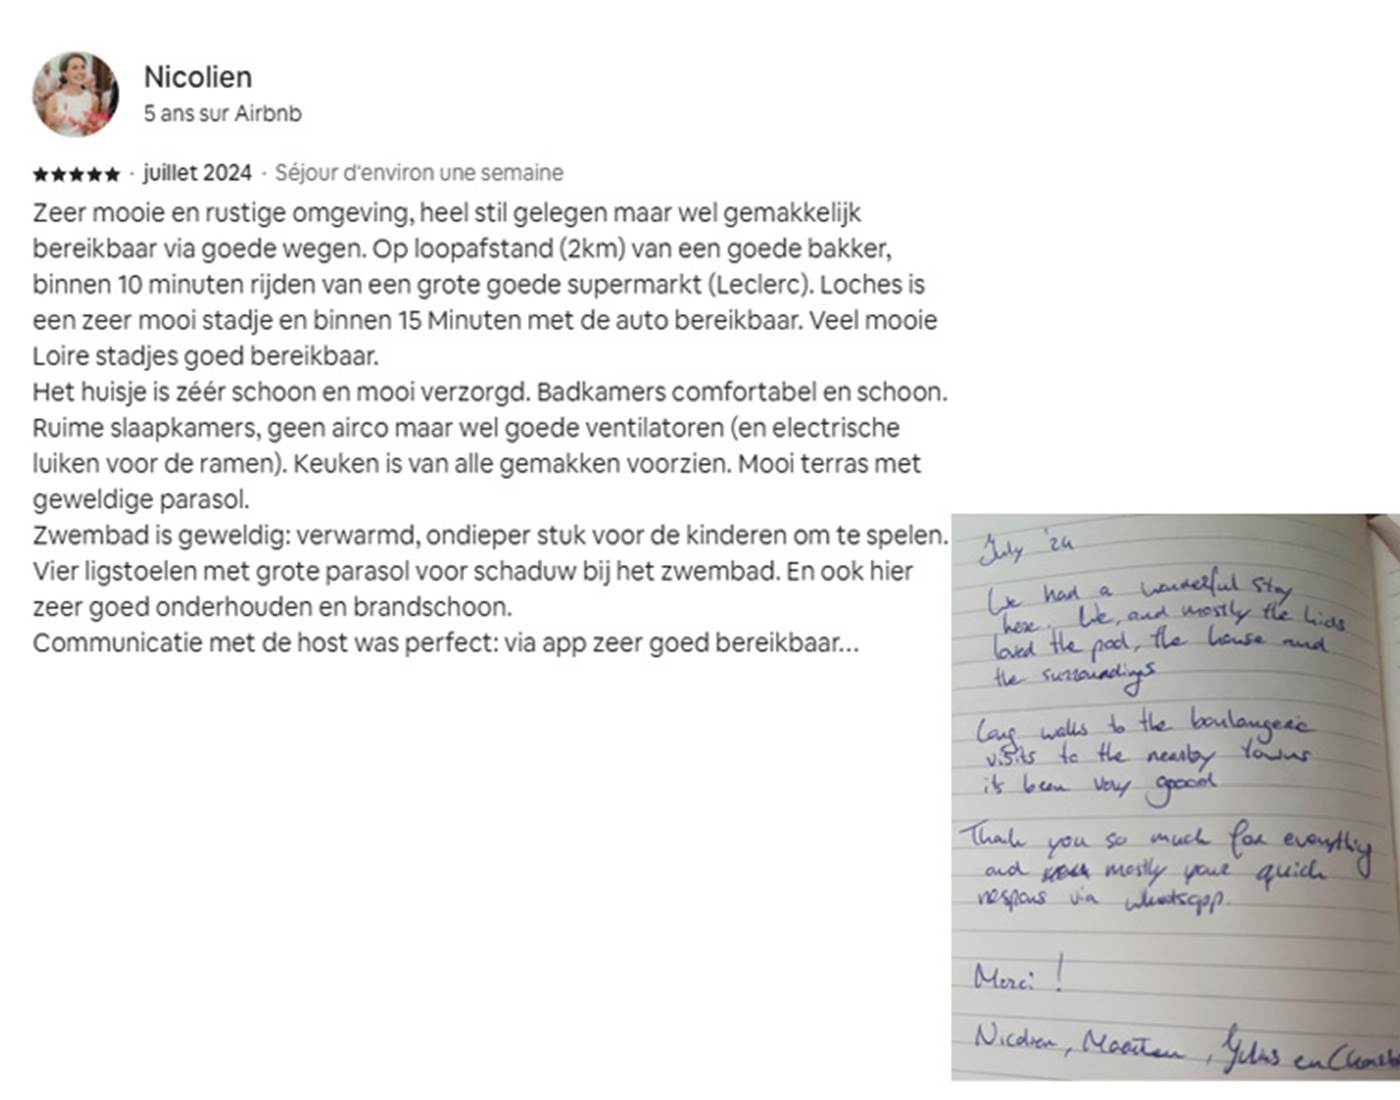 Nicolien
5 ans sur Airbnb
★★★★★ · juillet 2024 · Séjour d'environ une semaine
Zeer mooie en rustige omgeving, heel stil gelegen maar wel gemakkelijk
bereikbaar via goede wegen. Op loopafstand (2km) van een goede bakker,
binnen 10 minuten rijden van een grote goede supermarkt (Leclerc). Loches is
een zeer mooi stadje en binnen 15 Minuten met de auto bereikbaar. Veel mooie
Loire stadjes goed bereikbaar.
Het huisje is zéér schoon en mooi verzorgd. Badkamers comfortabel en schoon.
Ruime slaapkamers, geen airco maar wel goede ventilatoren (en electrische
luiken voor de ramen). Keuken is van alle gemakken voorzien. Mooi terras met
geweldige parasol.
Zwembad is geweldig: verwarmd, ondieper stuk voor de kinderen om te spelen.
Vier ligstoelen met grote parasol voor schaduw bij het zwembad. En ook hier
zeer goed onderhouden en brandschoon.
Communicatie met de host was perfect: via app zeer goed bereikbaar...
July '24
We had a wonderful stay
here. We, and mostly the kids
loved the pool, the house and
the surroundings
Long walks to the boulangerie
visits to the nearby towns
it's been very goood
Thank you so much for everything
and mostly your quick
respons via whatsapp.
Merci!
Nicolien, Maarten, Julius en